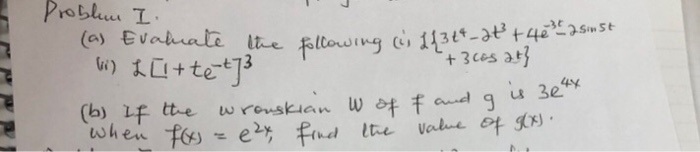 Problem I.
(a) Evaluate the following (i) L{3t⁴ - 2t³ + 4e⁻³ᵗ - 2sin5t
+ 3cos 2t}
(ii) L[1+te⁻ᵗ]³
(b) If the wronskian W of f and g is 3e⁴ˣ
when f(x) = e²ˣ, find the value of g(x).